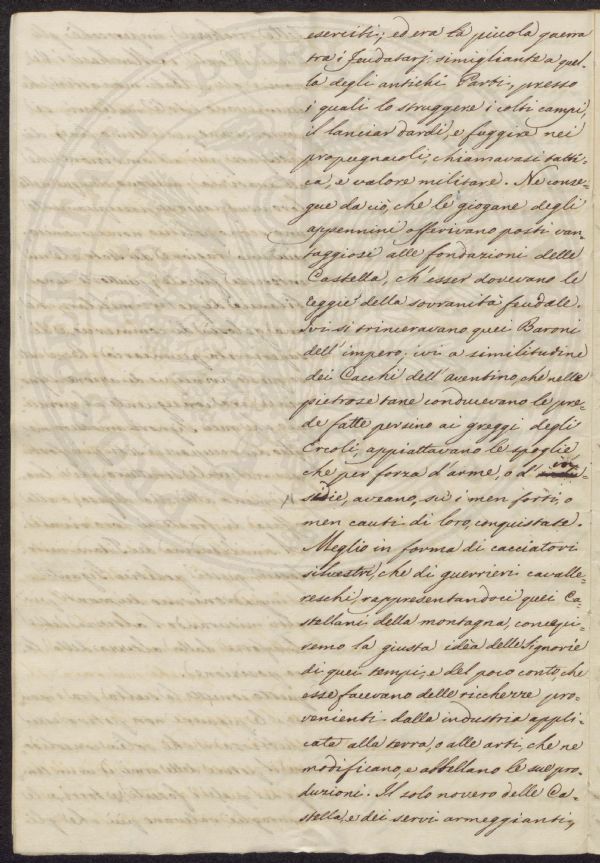 eserciti; ed era la piccola guerra
tra i feudatarj, simigliante a quel=
la degli antichi Parti, presso
i quali lo struggere i colti campi,
il lanciar dardi, e fuggire nei
propugnacoli, chiamavasi tatti=
ca, e valore militare. Ne conse=
gue da ciò, che le giogane degli
appennini offerivano posti van=
taggiosi alle fondazioni delle
Castella, ch'esser dovevano le
reggie della sovranità feudale.
Ivi si trinceravano quei Baroni
dell'impero; ivi a similitudine
dei Cacchi dell'aventino, che nelle
pietrose tane conducevano le pre=
de fatte persino ai greggi degli
Ercoli, appiattavano le spoglie
che per forza d'arme, o d'in=
sidie, aveano, su i men forti, o
men cauti di loro, conquistate.
Meglio in forma di cacciatori
silvestri, che di guerrieri cavalle=
reschi, rappresentandoci quei Ca=
stellani della montagna, concepi=
remo la giusta idèa delle Signorie
di quei tempi, e del poco conto, che
esse facevano delle ricchezze pro=
venienti dalla industria appli=
cata alla terra, o alle arti, che ne
modificano, e abbellano le sue pro=
duzioni. Il solo novero delle Ca=
stella, e dei servi armeggianti,